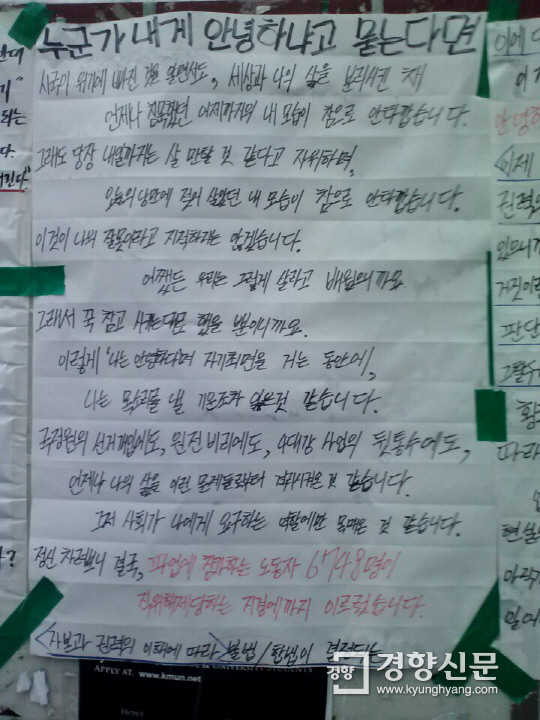 누군가 내게 안녕하냐고 묻는다면
시국이 위기에 빠진 것을 알면서도, 세상과 나의 삶을 분리시킨 채
언제나 침묵했던 어제까지의 내 모습이 참으로 안타깝습니다.
그래도 당장 내일까지는 살 만할 것 같다고 자위하며,
오늘의 낭만에 젖어 살았던 내 모습이 참으로 안타깝습니다.
이것이 나의 잘못이라고 지적하지는 않겠습니다.
어쨌든 우리는 그렇게 살라고 배웠으니까요
그래서 꾹 참고 시키는대로 했을 뿐이니까요.
이렇게 '나는 안녕하다'며 자기최면을 거는 동안에,
나는 목소리를 낼 기운조차 잃은 것 같습니다.
국정원의 선거개입에도, 원전비리에도, 4대강 사업의 뒷통수에도,
언제나 나의 삶을 이런 문제들로부터 격리시켜온 것 같습니다.
그저 사회가 나에게 요구하는 역할에만 목매온 것 같습니다.
정신 차려보니 결국, 파업에 참가하는 노동자 6748명이
직위해제당하는 지경에까지 이르렀습니다.
<자본과 권력의 이해에 따라> 불법/합법이 결정되는
APPLY AT. www.kmun.net
경향
경향신문
www.kyunghyang.com
이제
권력의
거짓이란
판단
따라
현실